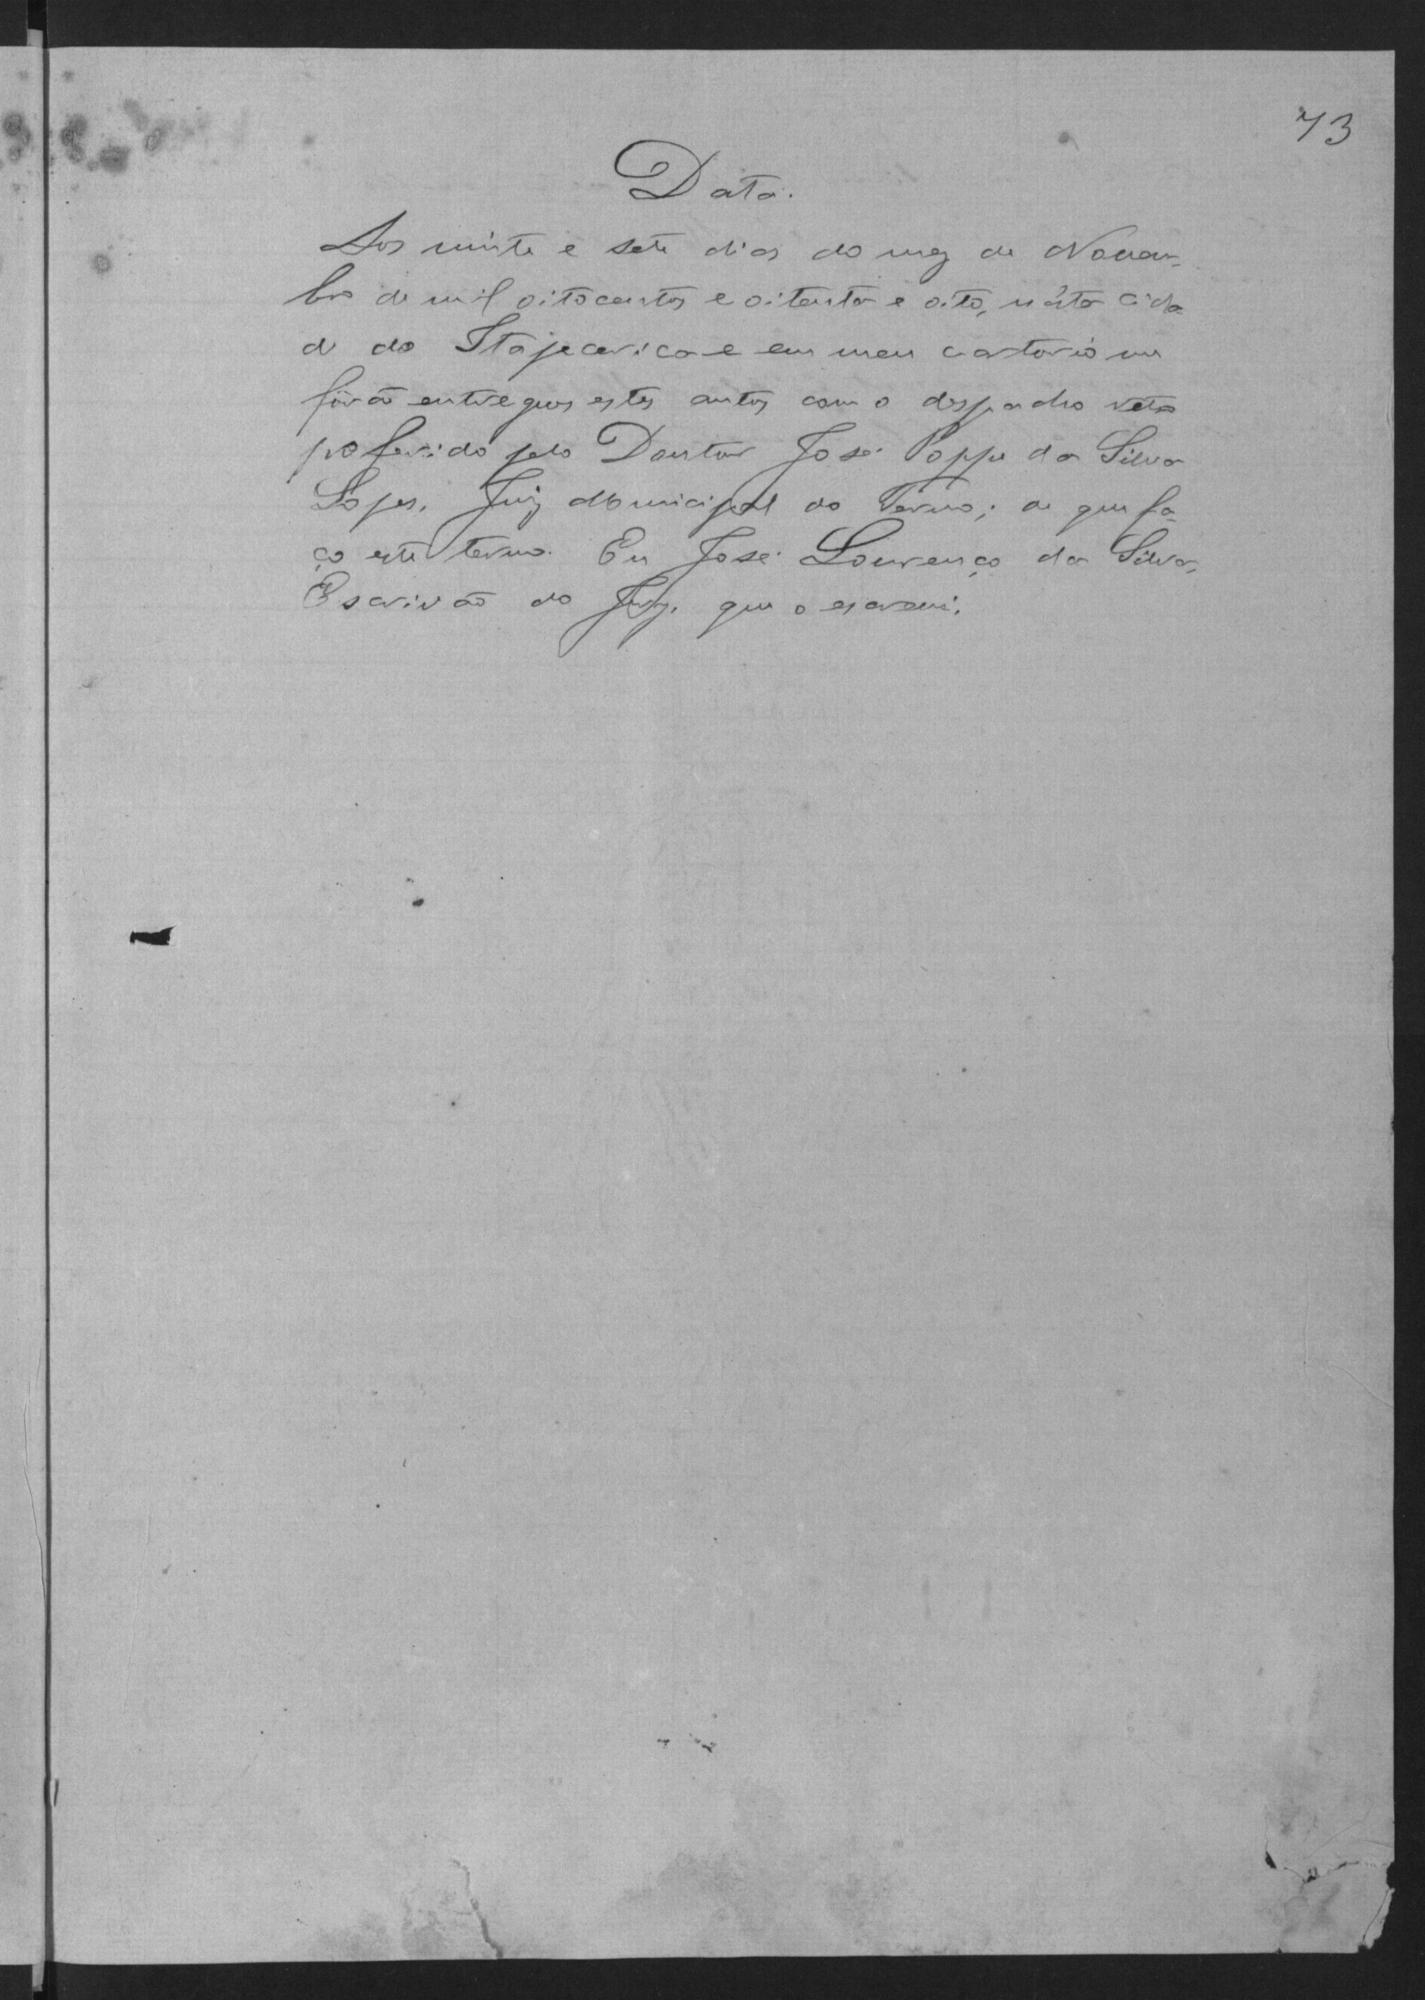 73
Data.
Aos vinte e sete dias do mez de Novem-
bro de mil oitocentos e oitenta e oito, nésta cida
de do Itapecerica e em meu cartorio me
fôrão entregues estes autos com o despacho rétro
proferido pelo Doutor José Poppe da Silva
Lopes, Juiz Municipal do Termo; de que fa-
ço este termo. Eu José Lourenço da Silva,
Escrivão do Jury, que o escrevi.